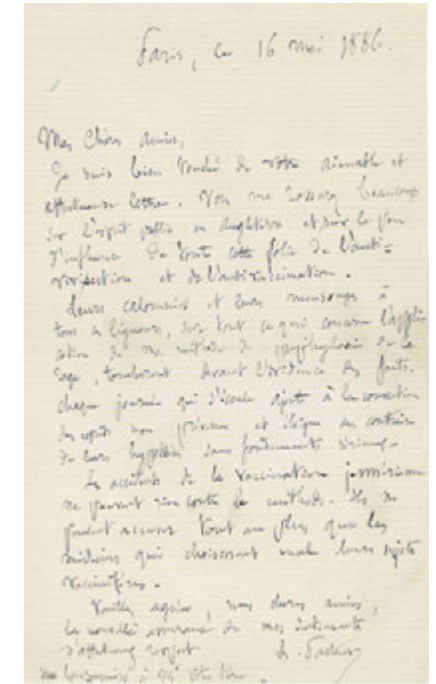 Paris, ce 16 mai 1886.
Mes chers amis,
Je suis bien touché de votre aimable et
affectueuse lettre. Vous me rassurez beaucoup
sur l'esprit public en Angleterre et sur le peu
d'influence de toute cette folie de l'anti-
vivisection et de l'antivaccination.
Leurs calomnies et leurs mensonges à
tous ces ligueurs, sur tout ce qui concerne l'appli
cation de ma méthode de prophylaxie de la
rage, tomberont devant l'évidence des faits.
Chaque journée qui s'écoule ajoute à la conviction
des esprits non prévenus et
de leurs hypothèses sans fondements sérieux.
Les accidents de la vaccination jennérienne
ne peuvent rien contre la méthode. Ils ne
peuvent accuser tout au plus que les
médecins qui choisissent mal leurs sujets
vaccinifères.
Veuillez agréer, mes chers amis,
la nouvelle assurance de mes sentiments
d'affectueux respect L. Pasteur